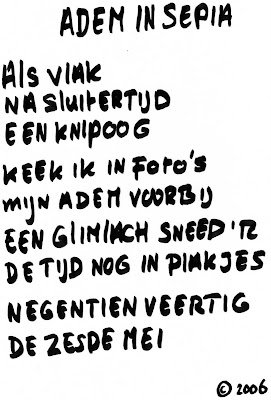 ADEM IN SEPIA
Als vlak
NA Sluitertijd
EEN KNIPOOG
KEEK IK IN FOTO'S
MIJN ADEM VOORBIJ
EEN GLIMLACH SNEED 'R
DE TIJD NOG IN PLAKJES
NEGENTIEN VEERTIG
DE ZESDE MEI
© 2006